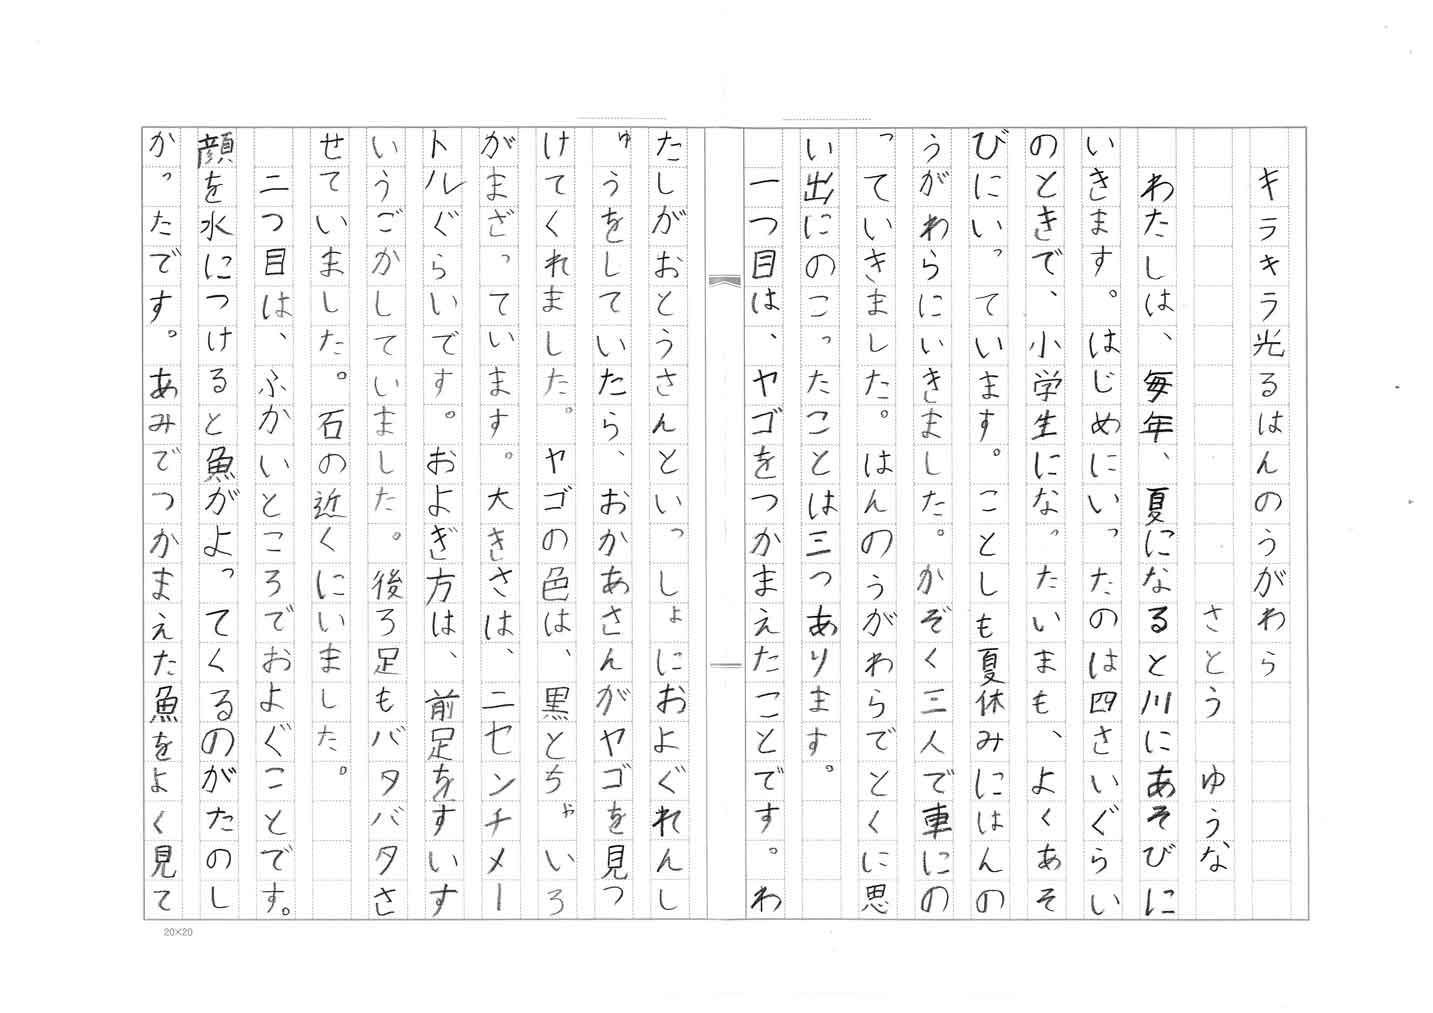 キラキラ光るはんのうがわら
さとう ゆうな
わたしは、毎年、夏になると川にあそびに
いきます。はじめにいったのは四さいぐらい
のときで、小学生になったいまも、よくあそ
びにいっています。ことしも夏休みにはんの
うがわらにいきました。かぞく三人で車にの
っていきました。はんのうがわらでとくに思
い出にのこったことは三つあります。
一つ目は、ヤゴをつかまえたことです。わ
たしがおとうさんといっしょにおよぐれんし
ゅうをしていたら、おかあさんがヤゴを見つ
けてくれました。ヤゴの色は、黒とちゃいろ
がまざっています。大きさは、ニセンチメー
トルぐらいです。およぎ方は、前足をすいす
いうごかしていました。後ろ足もバタバタさ
せていました。石の近くにいました。
二つ目は、ふかいところでおよぐことです。
顔を水につけると魚がよってくるのがたのし
かったです。あみでつかまえた魚をよく見て
20×20